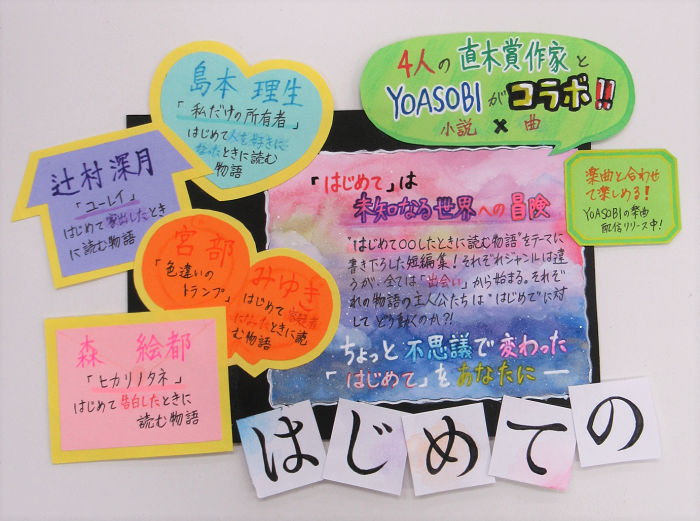 4人の直木賞作家と
YOASOBIがコラボ!!
小説×曲
島本 理生
「私だけの所有者」
はじめて人を好きに
なったときに読む
物語
辻村深月
「ユーレイ」
はじめて家出したとき
に読む物語
宮部
みゆき
「色違いの
トランプ」
はじめて容疑者
になったときに読
む物語
森 絵都
「ヒカリノタネ」
はじめて告白したときに
読む物語
「はじめて」は
未知なる世界への冒険
"はじめて○○したときに読む物語"をテーマに
書き下ろした短編集!それぞれジャンルは違
うが、全ては「出会い」から始まる。それぞ
れの物語の主人公たちは"はじめて"に対
してどう動くのか?!
ちょっと不思議で変わった
「はじめて」をあなたに―
楽曲と合わせ
て楽しめる!
YOASOBIの楽曲
配信リリース中!
はじめての